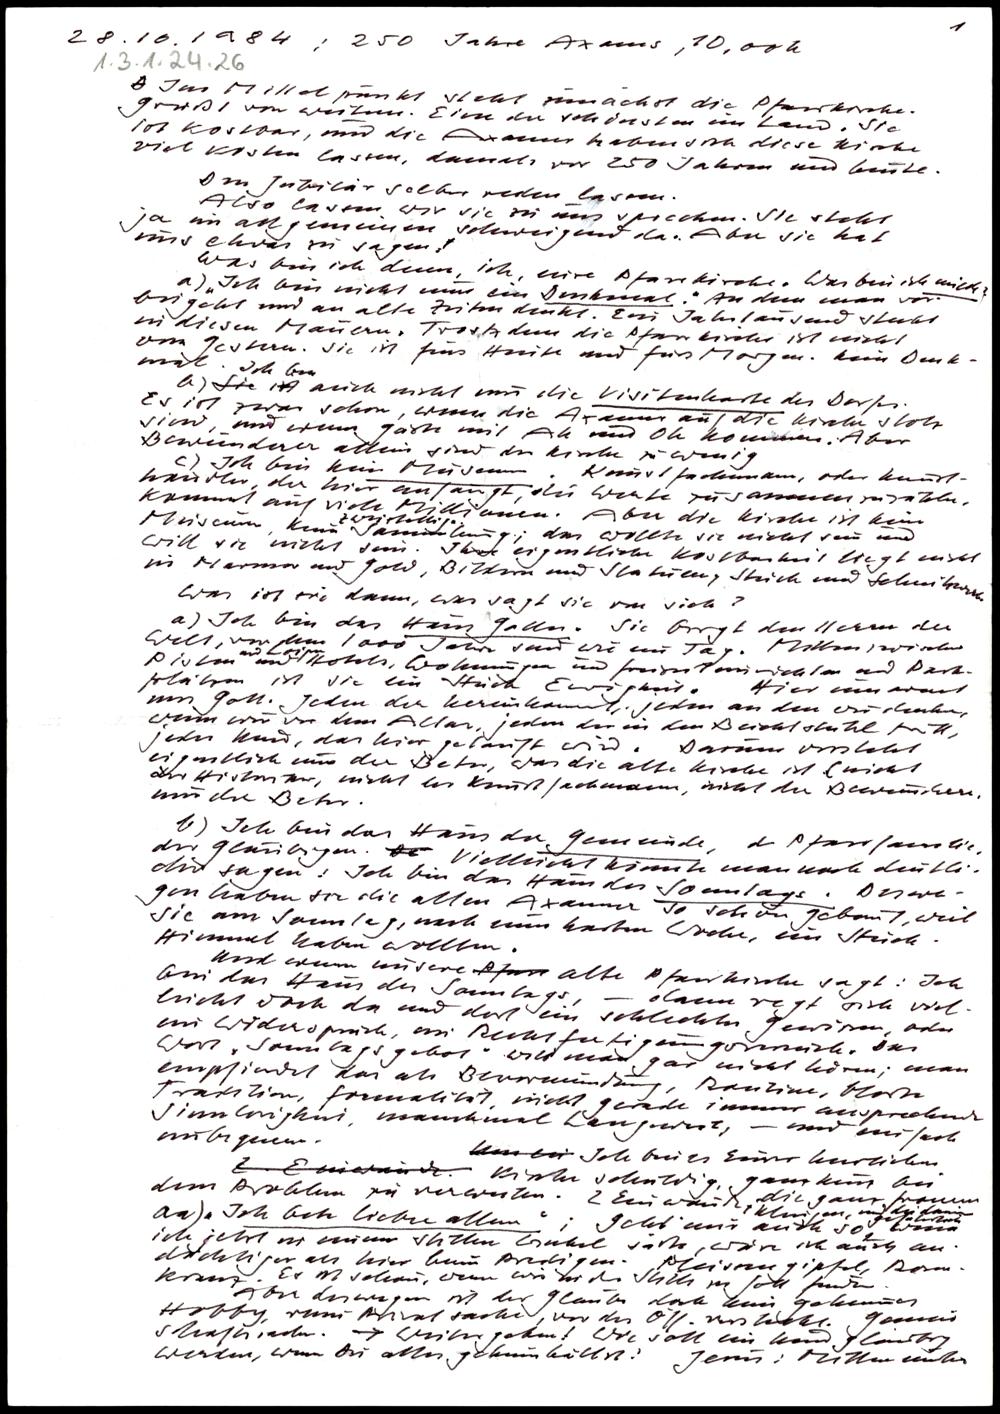 28.10.1984 ; 250 Jahre Axams, 10.00h
1
1.3.1.24.26
Im Mittelpunkt steht zunächst die Pfarrkirche.
grüßt von weitem. Eine der schönsten im Land. Sie
ist kostbar, und die Axamer haben sich diese Kirche
viel kosten lassen, damals vor 250 Jahren und heute.
Den Jubilar selber reden lassen.
Also lassen wir sie zu uns sprechen. Sie steht
ja im allgemeinen schweigend da. Aber sie hat
uns etwas zu sagen!
Was bin ich denn, ich, eure Pfarrkirche. Was bin ich nicht?
a) „Ich bin nicht nur ein Denkmal." An dem man vor-
beigeht und an alte Zeiten denkt. Ein Jahrtausend steckt
in diesen Mauern. Trotzdem die Pfarrkirche ist nicht
von Gestern. Sie ist fürs Heute und fürs Morgen. Kein Denk-
mal.
b) Sie ist Ich bin auch nicht nur die Visitenkarte des Dorfes.
Es ist zwar schön, wenn die Axamer auf die Kirche stolz
sind, und wenn Gäste mit Ah und Oh kommen. Aber
Bewunderer allein sind der Kirche zu wenig
c) Ich bin kein Museum. Kunstfachmann, oder Kunst-
händler, der hier anfängt, die Werte zusammenzuzählen,
kommt auf viele Millionen. Aber die Kirche ist kein
Museum, keine Sammlung; das wollte sie nicht sein und
will sie nicht sein. Ihre eigentliche Kostbarkeit liegt nicht
in Marmor und Gold, Bildern und Statuen, Stuck und Schnitzwerk
Was ist sie dann, was sagt sie von sich?
a) Ich bin das Haus Gottes. Sie birgt den Herrn der
Welt, vor dem 1000 Jahre sind wie ein Tag. Mitten zwischen
Pisten und Loipen und Hotels, Wohnungen und Freizeiteinrichten und Park-
plätzen ist sie ein Stück Ewigkeit. Hier umarmt
uns Gott. Jeden der hereinkommt, jeden an den wir denken,
wenn wir vor dem Altar, jeden der in den Beichtstuhl tritt,
jedes Kind, das hier getauft wird. Darum versteht
eigentlich nur der Beter, was die alte Kirche ist (nicht
der Historiker, nicht der Kunstfachmann, nicht der Bewunderer,
nur der Beter.
b) Ich bin das Haus der Gemeinde, d Pfarrfamilie,
der Gläubigen. Vielleicht könnte man noch deutli-
cher sagen: Ich bin das Haus des Sonntags. Deswe-
gen haben sie die alten Axamer so schön gebaut, weil
sie am Sonntag, nach einer harten Woche, ein Stück
Himmel haben wollten.
Und wenn unsere Pfarr alte Pfarrkirche sagt: Ich
bin das Haus des Sonntags, — dann regt sich viel-
leicht doch da und dort ein schlechtes Gewissen, oder
ein Widerspruch, ein Rechtfertigungsversuch. Das
Wort „Sonntagsgebot" will man gar nicht hören; man
empfindet das als Bevormundung, Routine, bloße
Tradition, Formalität, nicht gerade immer ansprechende
Sinnlosigkeit, manchmal Langeweile, — und einfach
unbequem.
2 Einwände. Ich bin es Eurer herrlichen
Kirche schuldig, ganz kurz bei
dem Problem zu verweilen. 2 Einwände, die ganz fromm
klingen,
aa) „Ich bete lieber allein"; geht mir auch so, wenn
ich jetzt in einem stillen Winkel säße, wäre ich auch an-
dächtiger als hier beim Predigen. Rosen-
kranz. Es ist schön, wenn wir in der Stille zu Gott finden.
Aber deswegen ist der Glaube doch kein geheimes
Hobby, reine Privatsache, vor der Öff. versteckt. Gemein
schaftssache. → Weitergeben! Wie soll ein Kind gläubig
werden, wenn Du alles geheimhältst! Jesus: Mitten unter